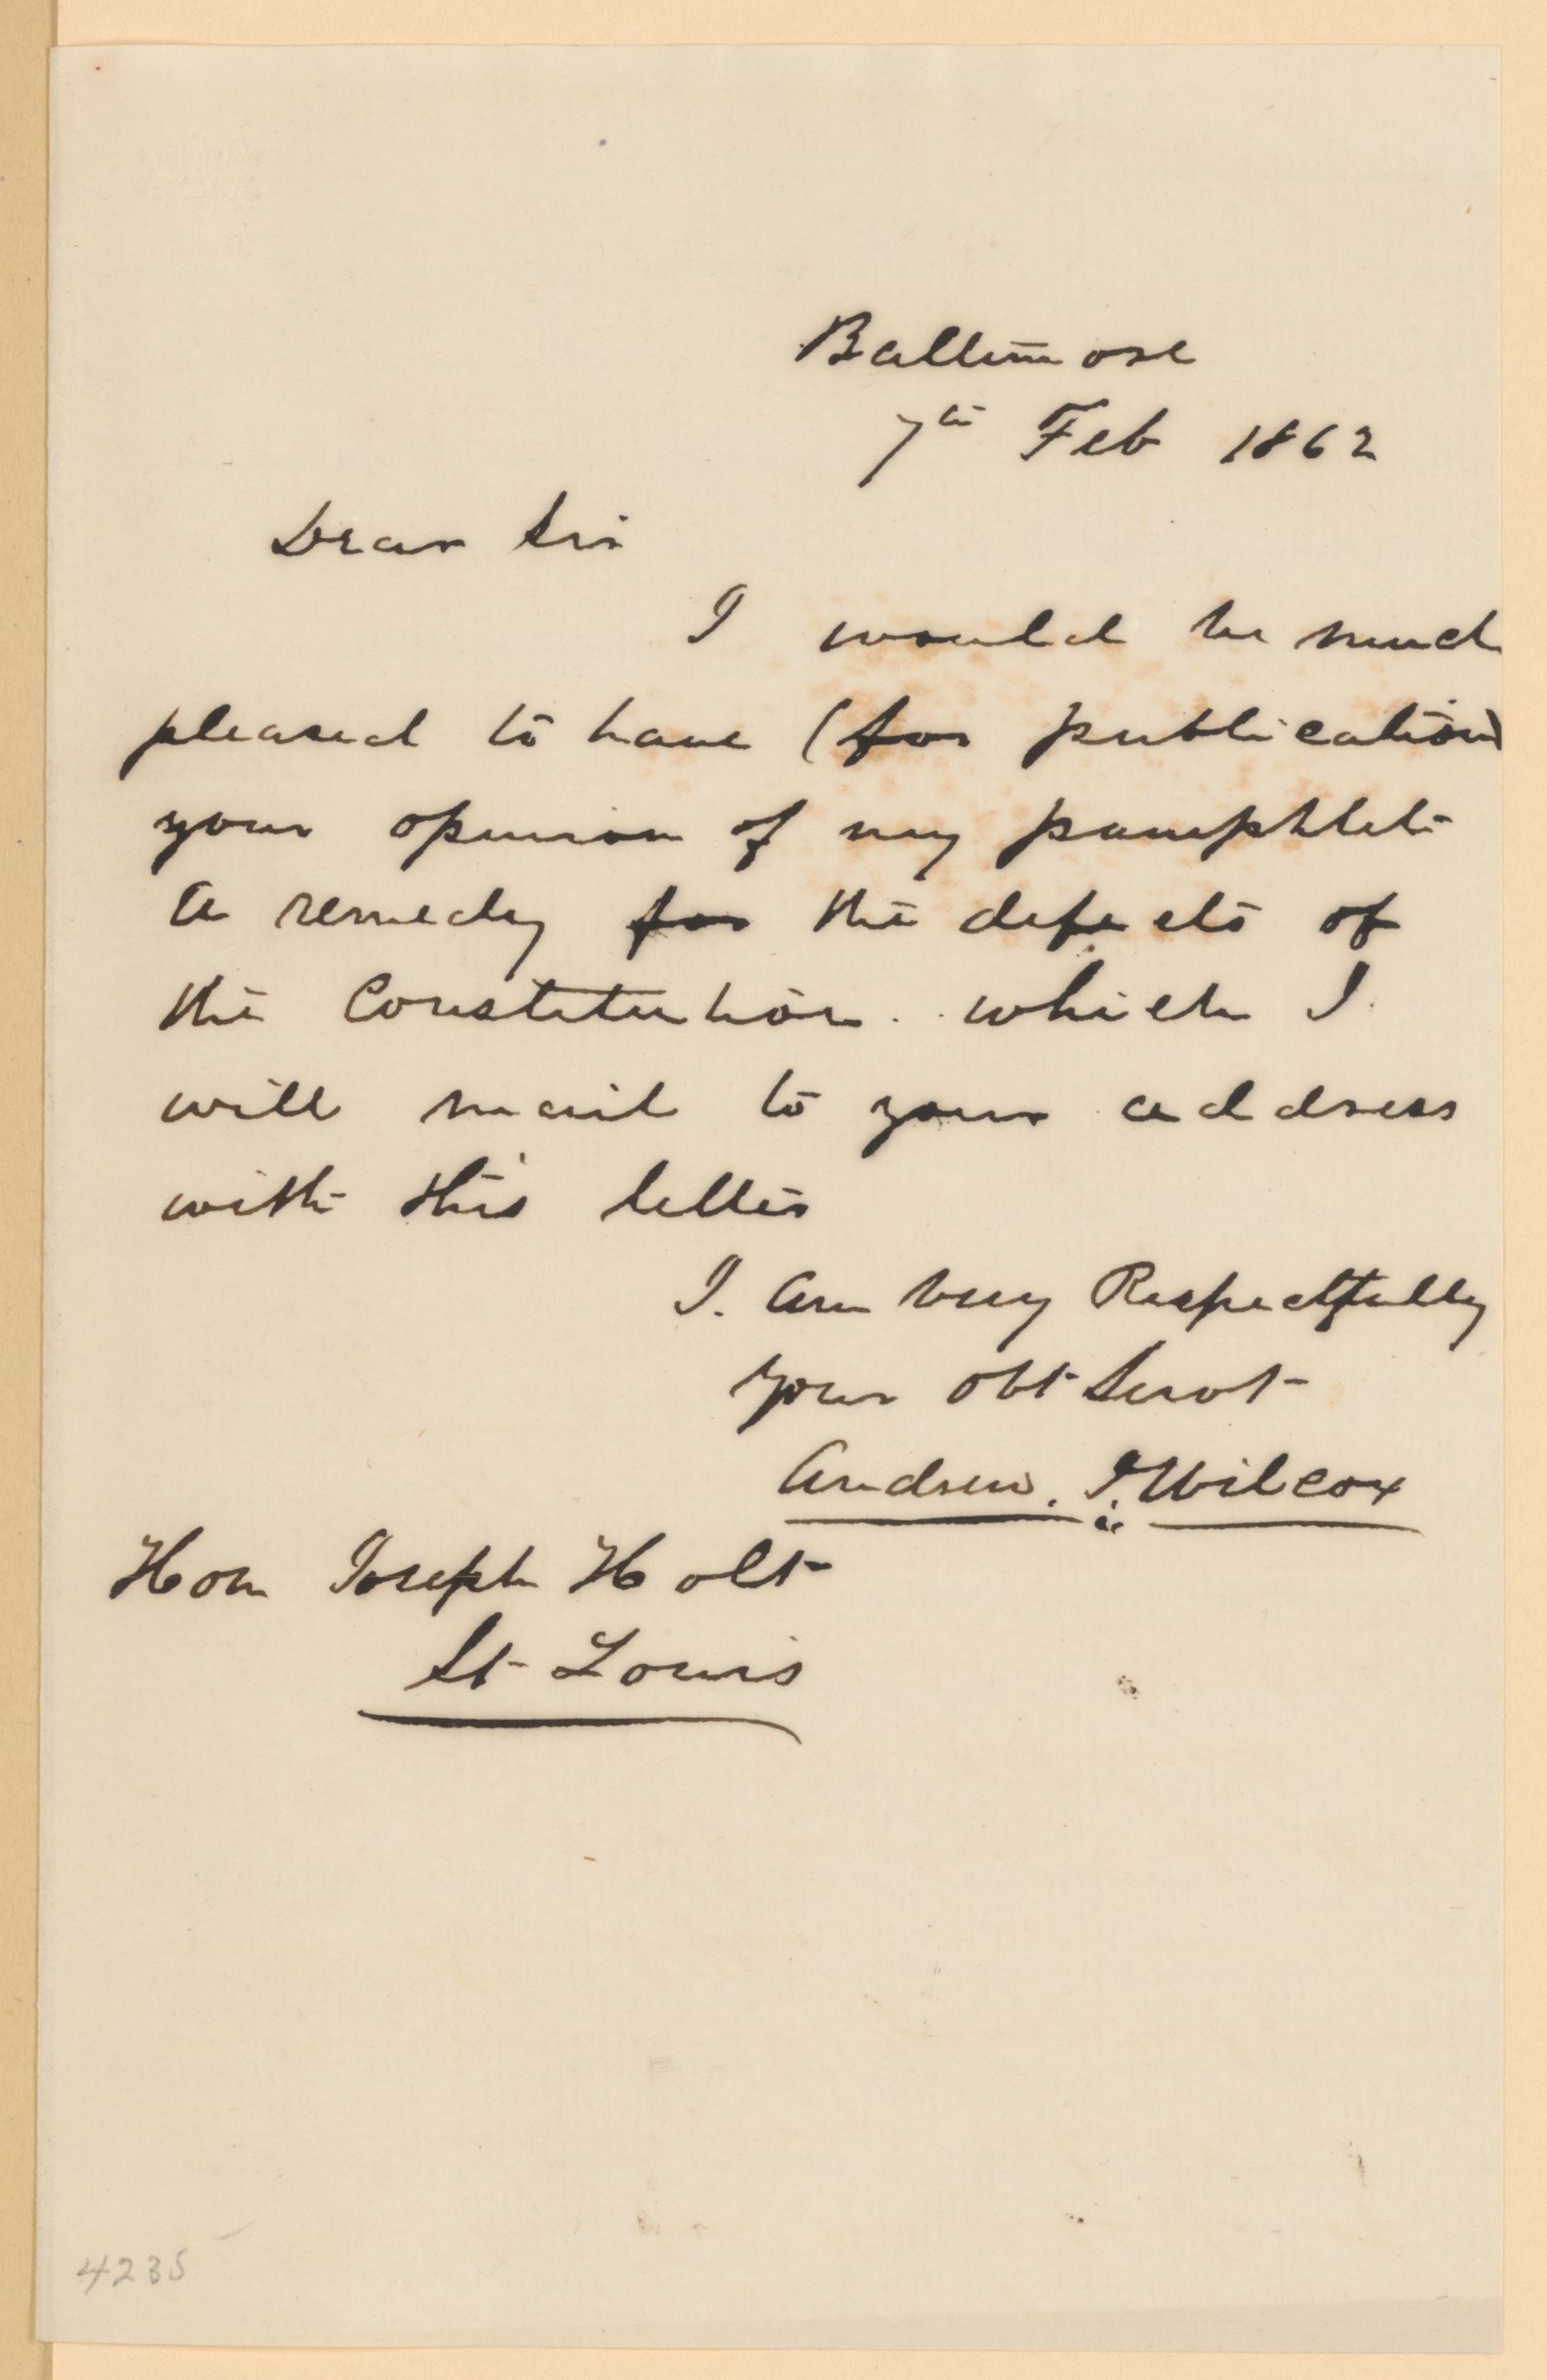 Baltimore
7th Feb 1862
Dear Sir
I would be much
pleased to have (for publication)
your opinion of my pamphlet
A remedy for the defects of
the Constitution. which I
will mail to your address
with this letter
I. am very Respectfully
your obt Servt
Andrew. J. Wilcox
Hon Joseph Holt
St Louis
4235